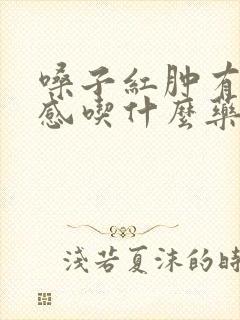 嗓子紅肿有
感喫什麼藥
淺若夏沫的時